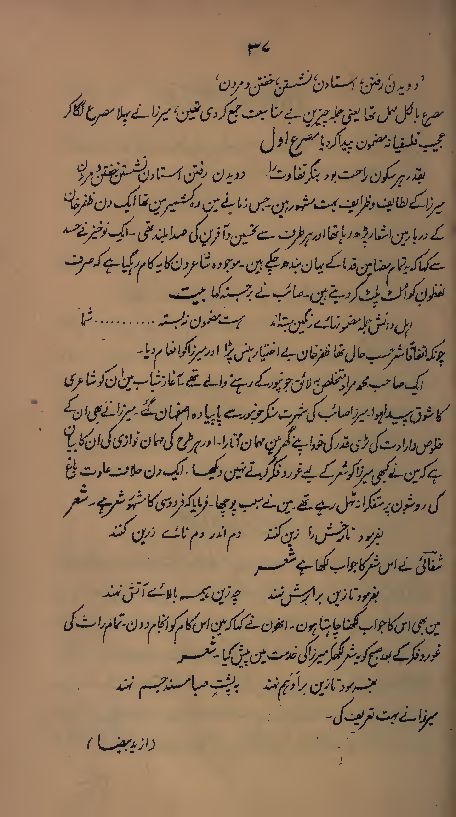 ۳۷
"دویدن، رفتن، استادن، نشستن، خفتن و مردن"
مصرع بالکل مہمل تھا یعنی چند چیزین بے مناسبت جمع کر دی تھین، میرزا نے پہلا مصرع لگا کر
عجیب فلسفیانہ مضمون پیدا کر دیا مصرع اول
بقدر ہر سکون راحت بود بنگر تفاوت را دویدن رفتن استادن نشستن خفتن و مردن
میرزا کے لطائف و ظرائف بہت مشہور ہین، جس زمانے مین وہ کشمیر مین تھا ایک دن ظفر خان
کے دربار مین اشعار پڑھ رہا تھا اور ہر طرف سے تحسین و آفرین کی صدا بلند تھی۔ ایک نوخیز نے حسد
سے کہا کہ تمام مضامین قدما کے بیان بندھ چکے ہین۔ موجودہ شاعرون کا یہ کام رہ گیا ہے کہ صرف
لفظون کو الٹ پلٹ کر دیتے ہین۔ صائب نے برجستہ کہا بیت
اہل دانش جملہ مضمونہائے رنگین بستہ اند ہست مضمون نہ بستہ ........... شما
چونکہ اتفاقاً شعر حسب حال تھا ظفر خان بے اختیار ہنس پڑا اور میرزا کو انعام دیا۔
ایک صاحب محمد مراد متخلص بہ لائق جونپور کے رہنے والے تھے۔ آغاز شباب مین ان کو شاعری
کا شوق پیدا ہوا، میرزا صائب کی شہرت سنکر جونپور سے پاپیادہ اصفہان گئے۔ میرزا نے بھی ان کے
خلوص و ارادت کی بڑی قدر کی خود اپنے گھر مین مہمان اتارا۔ اور ہر طرح کی مہمان نوازی کی ان کا بیان
ہے کہ مین نے کبھی میرزا کو شعر کے لیے غور و فکر کرتے نہین دیکھا۔ ایک دن خلاف عادت باغ
کی روشون پر متفکرانہ ٹہل رہے تھے۔ مین نے سبب پوچھا۔ فرمایا کہ فردوسی کا مشہور شعر ہے۔ شعر
بفرمود تا رخش را زین کنند دم اندر دم نائے زرین کنند
شفائی نے اس شعر کا جواب لکھا ہے شعر
بفرمود تا زین برابرش نہند چہ زین بیمہ بالائے آتش نہند
مین بھی اس کا جواب لکھنا چاہتا ہون۔ انھون نے کہا کہ مین اس کام کو انجام دون۔ تمام رات کی
غور و فکر کے بعد صبح کو یہ شعر لکھکر میرزا کی خدمت مین پیش کیا۔ شعر
بفرمود تا زین بر ادہم نہند بہ پشت صبا مسند جم نہند
میرزا نے بہت تعریف کی۔
(از ید بیضا)